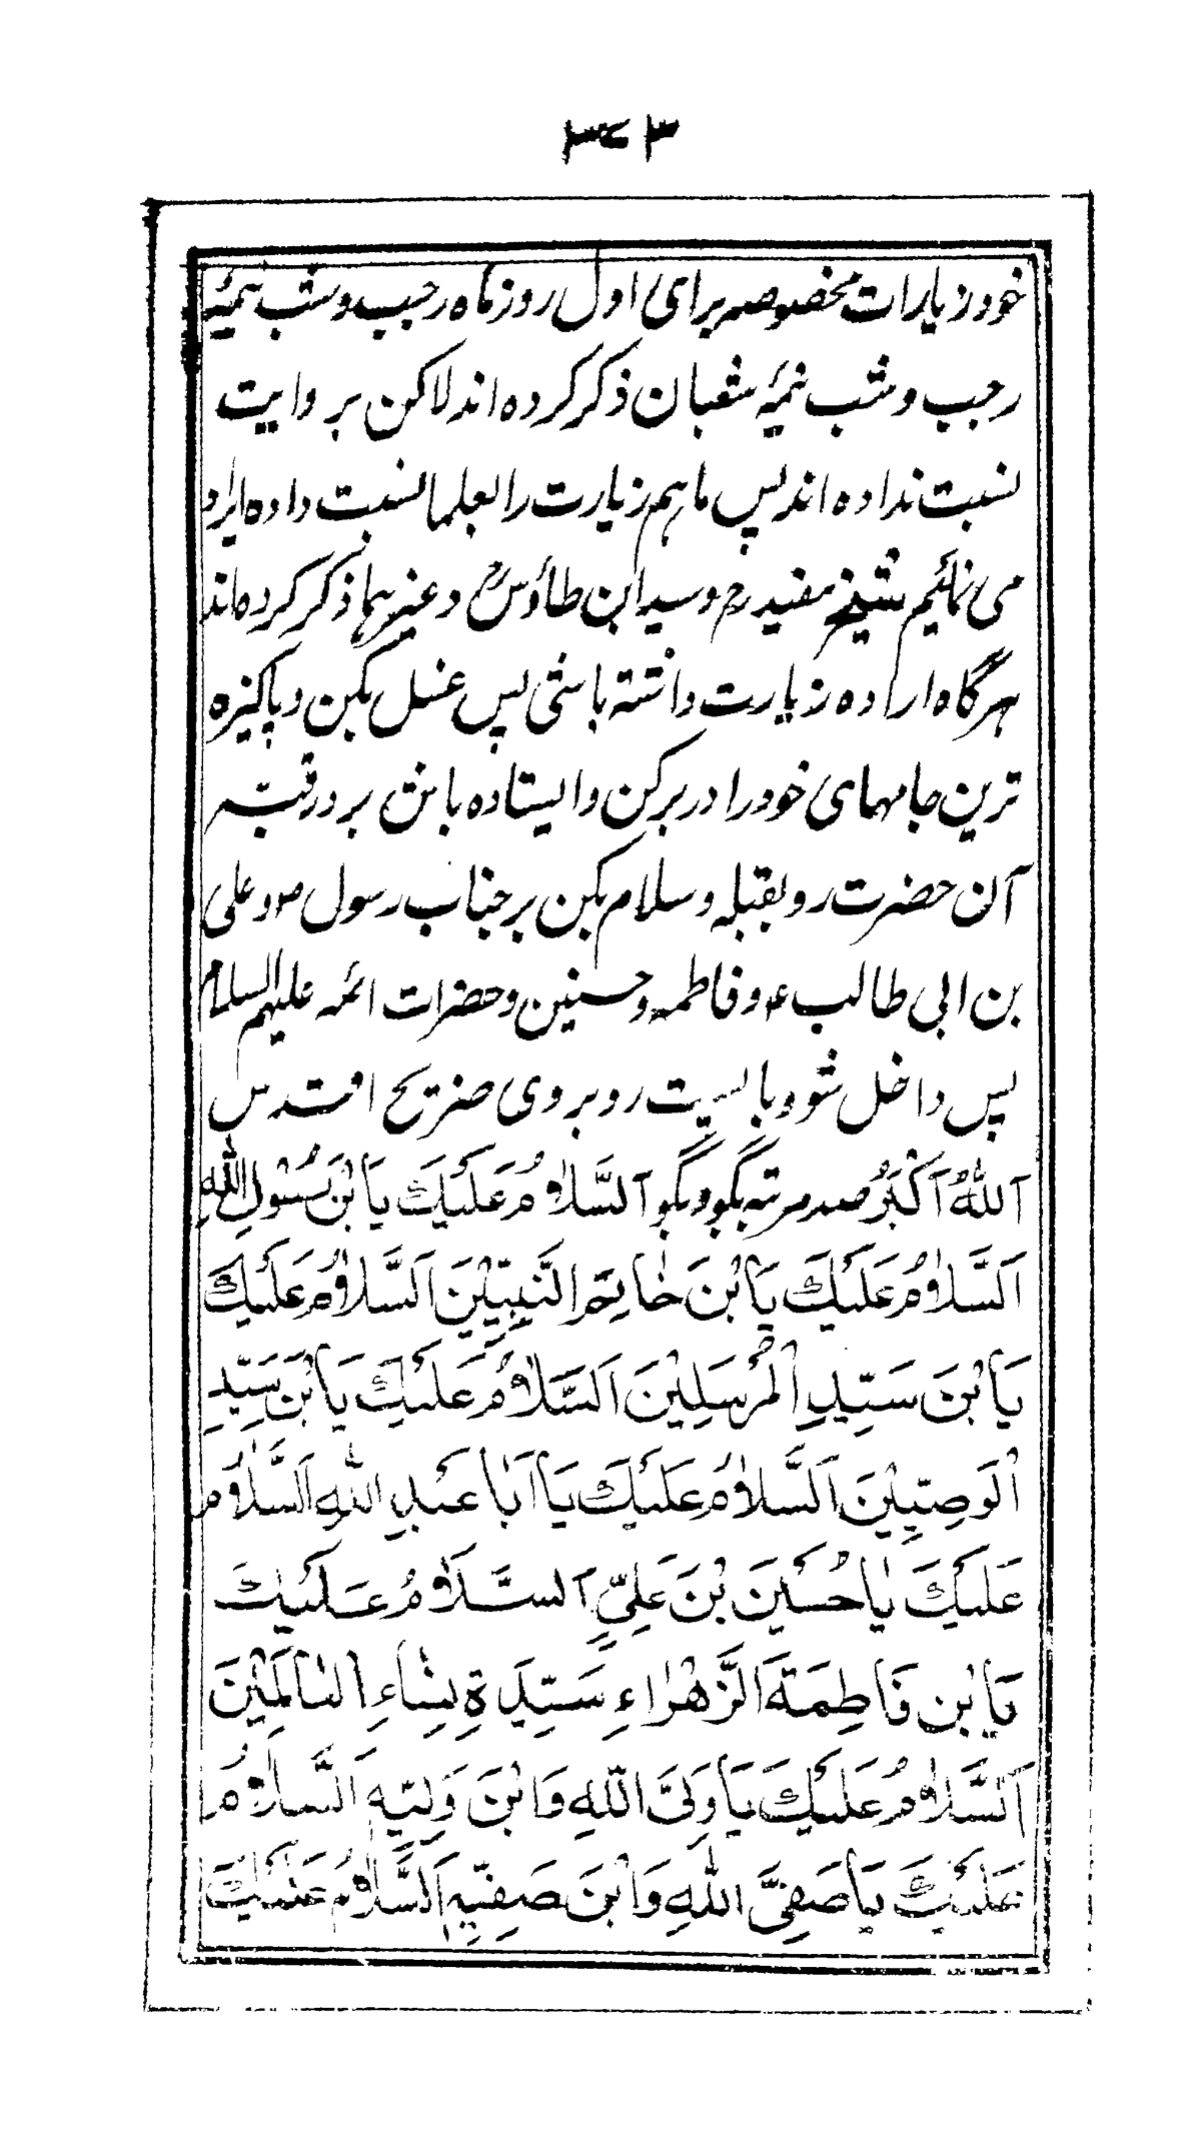 ٣٤٣
خود زیارات مخصوصه برای اول روز ماه رجب و شب نیمۀ
رجب و شب نیمۀ شعبان ذکر کرده اند لاکن بر وایت
نسبت نداده اند پس ما هم زیارت را بعلما نسبت داده ایراد
می نمائیم شیخ مفید رح و سید ابن طاؤس رح و غیرهما ذکر کرده اند
هرگاه اراده زیارت داشته باشی پس غسل بکن و پاکیزه
ترین جامهای خود را در بر کن و ایستاده باش بر در قبه
آن حضرت رو بقبله و سلام بکن بر جناب رسول ص و علی
بن ابی طالب ع و فاطمه و حسنین و حضرات ائمه علیهم السلام
پس داخل شو و بایست رو بروی ضریح اقدس
اَللّٰهُ اَكْبَرُ صد مرتبه بگو و بگو اَلسَّلَامُ عَلَيْكَ يَا بْنَ رَسُوْلِ اللّٰهِ
اَلسَّلَامُ عَلَيْكَ يَا بْنَ خَاتِمِ النَّبِيِّيْنَ اَلسَّلَامُ عَلَيْكَ
يَا بْنَ سَيِّدِ الْمُرْسَلِيْنَ اَلسَّلَامُ عَلَيْكَ يَا بْنَ سَيِّدِ
الْوَصِيِّيْنَ اَلسَّلَامُ عَلَيْكَ يَا اَبَا عَبْدِ اللّٰهِ اَلسَّلَامُ
عَلَيْكَ يَا حُسَيْنَ بْنَ عَلِيٍّ اَلسَّلَامُ عَلَيْكَ
يَا بْنَ فَاطِمَةَ الزَّهْرَاءِ سَيِّدَةِ نِسَاءِ الْعَالَمِيْنَ
اَلسَّلَامُ عَلَيْكَ يَا وَلِيَّ اللّٰهِ وَابْنَ وَلِيِّهٖ اَلسَّلَامُ
عَلَيْكَ يَا صَفِيَّ اللّٰهِ وَابْنَ صَفِيِّهٖ اَلسَّلَامُ عَلَيْكَ